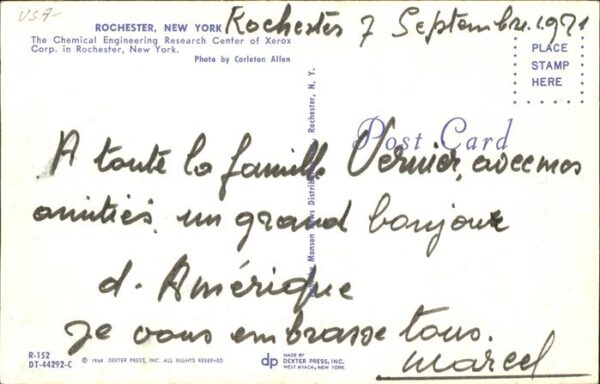 USA-
ROCHESTER, NEW YORK
The Chemical Engineering Research Center of Xerox
Corp. in Rochester, New York.
Photo by Carleton Allen
Rochester 7 Septembre 1971
PLACE
STAMP
HERE
Post Card
A toute la famille Vernier, avec mes
amitiés un grand bonjour
d'Amérique
Je vous embrasse tous.
Marcel
Manson News Distrib Rochester, N. Y.
R-152
DT-44292-C
© 1968 DEXTER PRESS, INC. ALL RIGHTS RESERVED
dp
MADE BY
DEXTER PRESS, INC.
WEST NYACK, NEW YORK